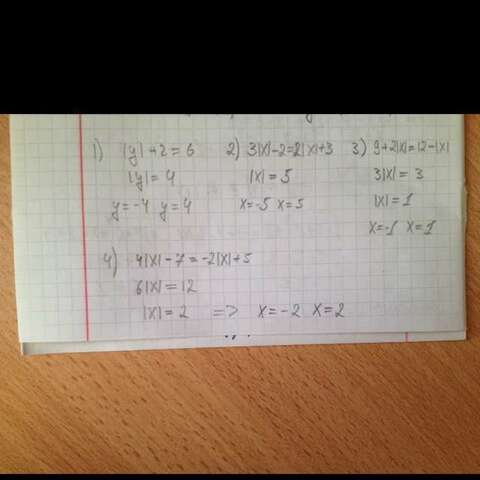 1) |y|+2=6
|y|=4
y=-4 y=4
2) 3|x|-2=2|x|+3
|x|=5
x=-5 x=5
3) 9+2|x|=12-|x|
3|x|=3
|x|=1
x=-1 x=1
4) 4|x|-7=-2|x|+5
6|x|=12
|x|=2 => x=-2 x=2